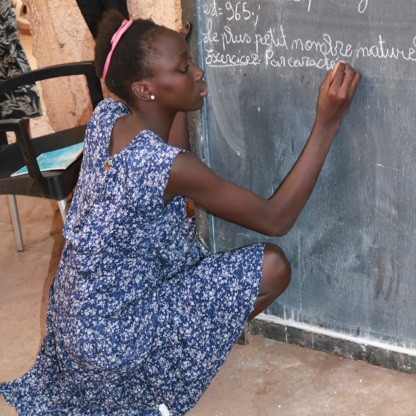 est= 965.;
le plus petit nombre naturel
Exercice2: Par caractè